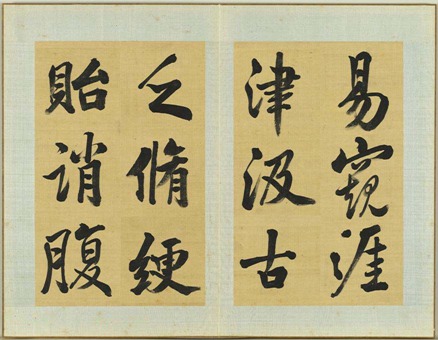 易窺涯
津汲古
乏脩綆
貽誚腹